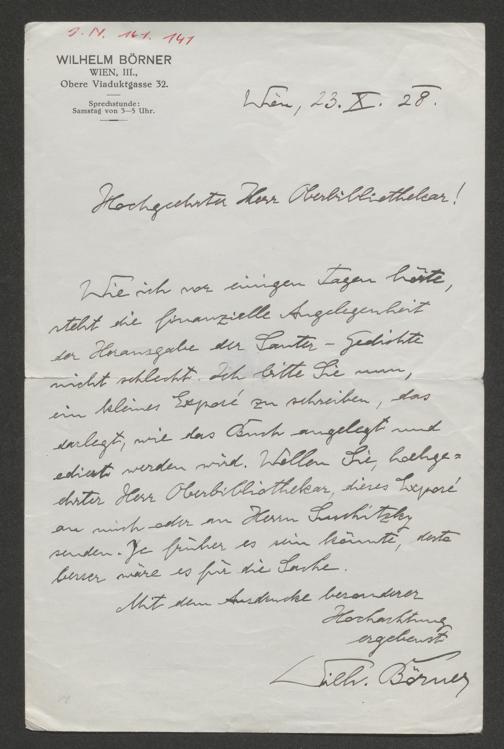 J. N. 161.141
WILHELM BÖRNER
WIEN, III.,
Obere Viaduktgasse 32.
Sprechstunde:
Samstag von 3—5 Uhr.
Wien, 23. X. 28.
Hochgeehrter Herr Oberbibliothekar!
Wie ich vor einigen Tagen hörte,
steht die finanzielle Angelegenheit
der Herausgabe der Sauter-Gedichte
nicht schlecht. Ich bitte Sie nun,
ein kleines Exposé zu schreiben, das
darlegt, wie das Buch angelegt und
ediert werden wird. Wollen Sie, hochge=
ehrter Herr Oberbibliothekar, dieses Exposé
an mich oder an Herrn Suschitzky
senden. Je früher es sein könnte, desto
besser wäre es für die Sache.
Mit dem Ausdrucke besonderer
Hochachtung
ergebenst
Wilh. Börner